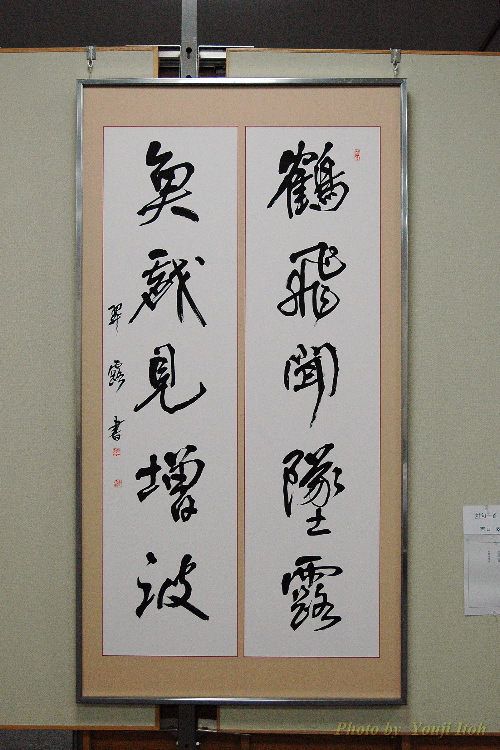 鶴飛聞墜露
魚戯見増波
翠露書
Photo by Yonji Itoh